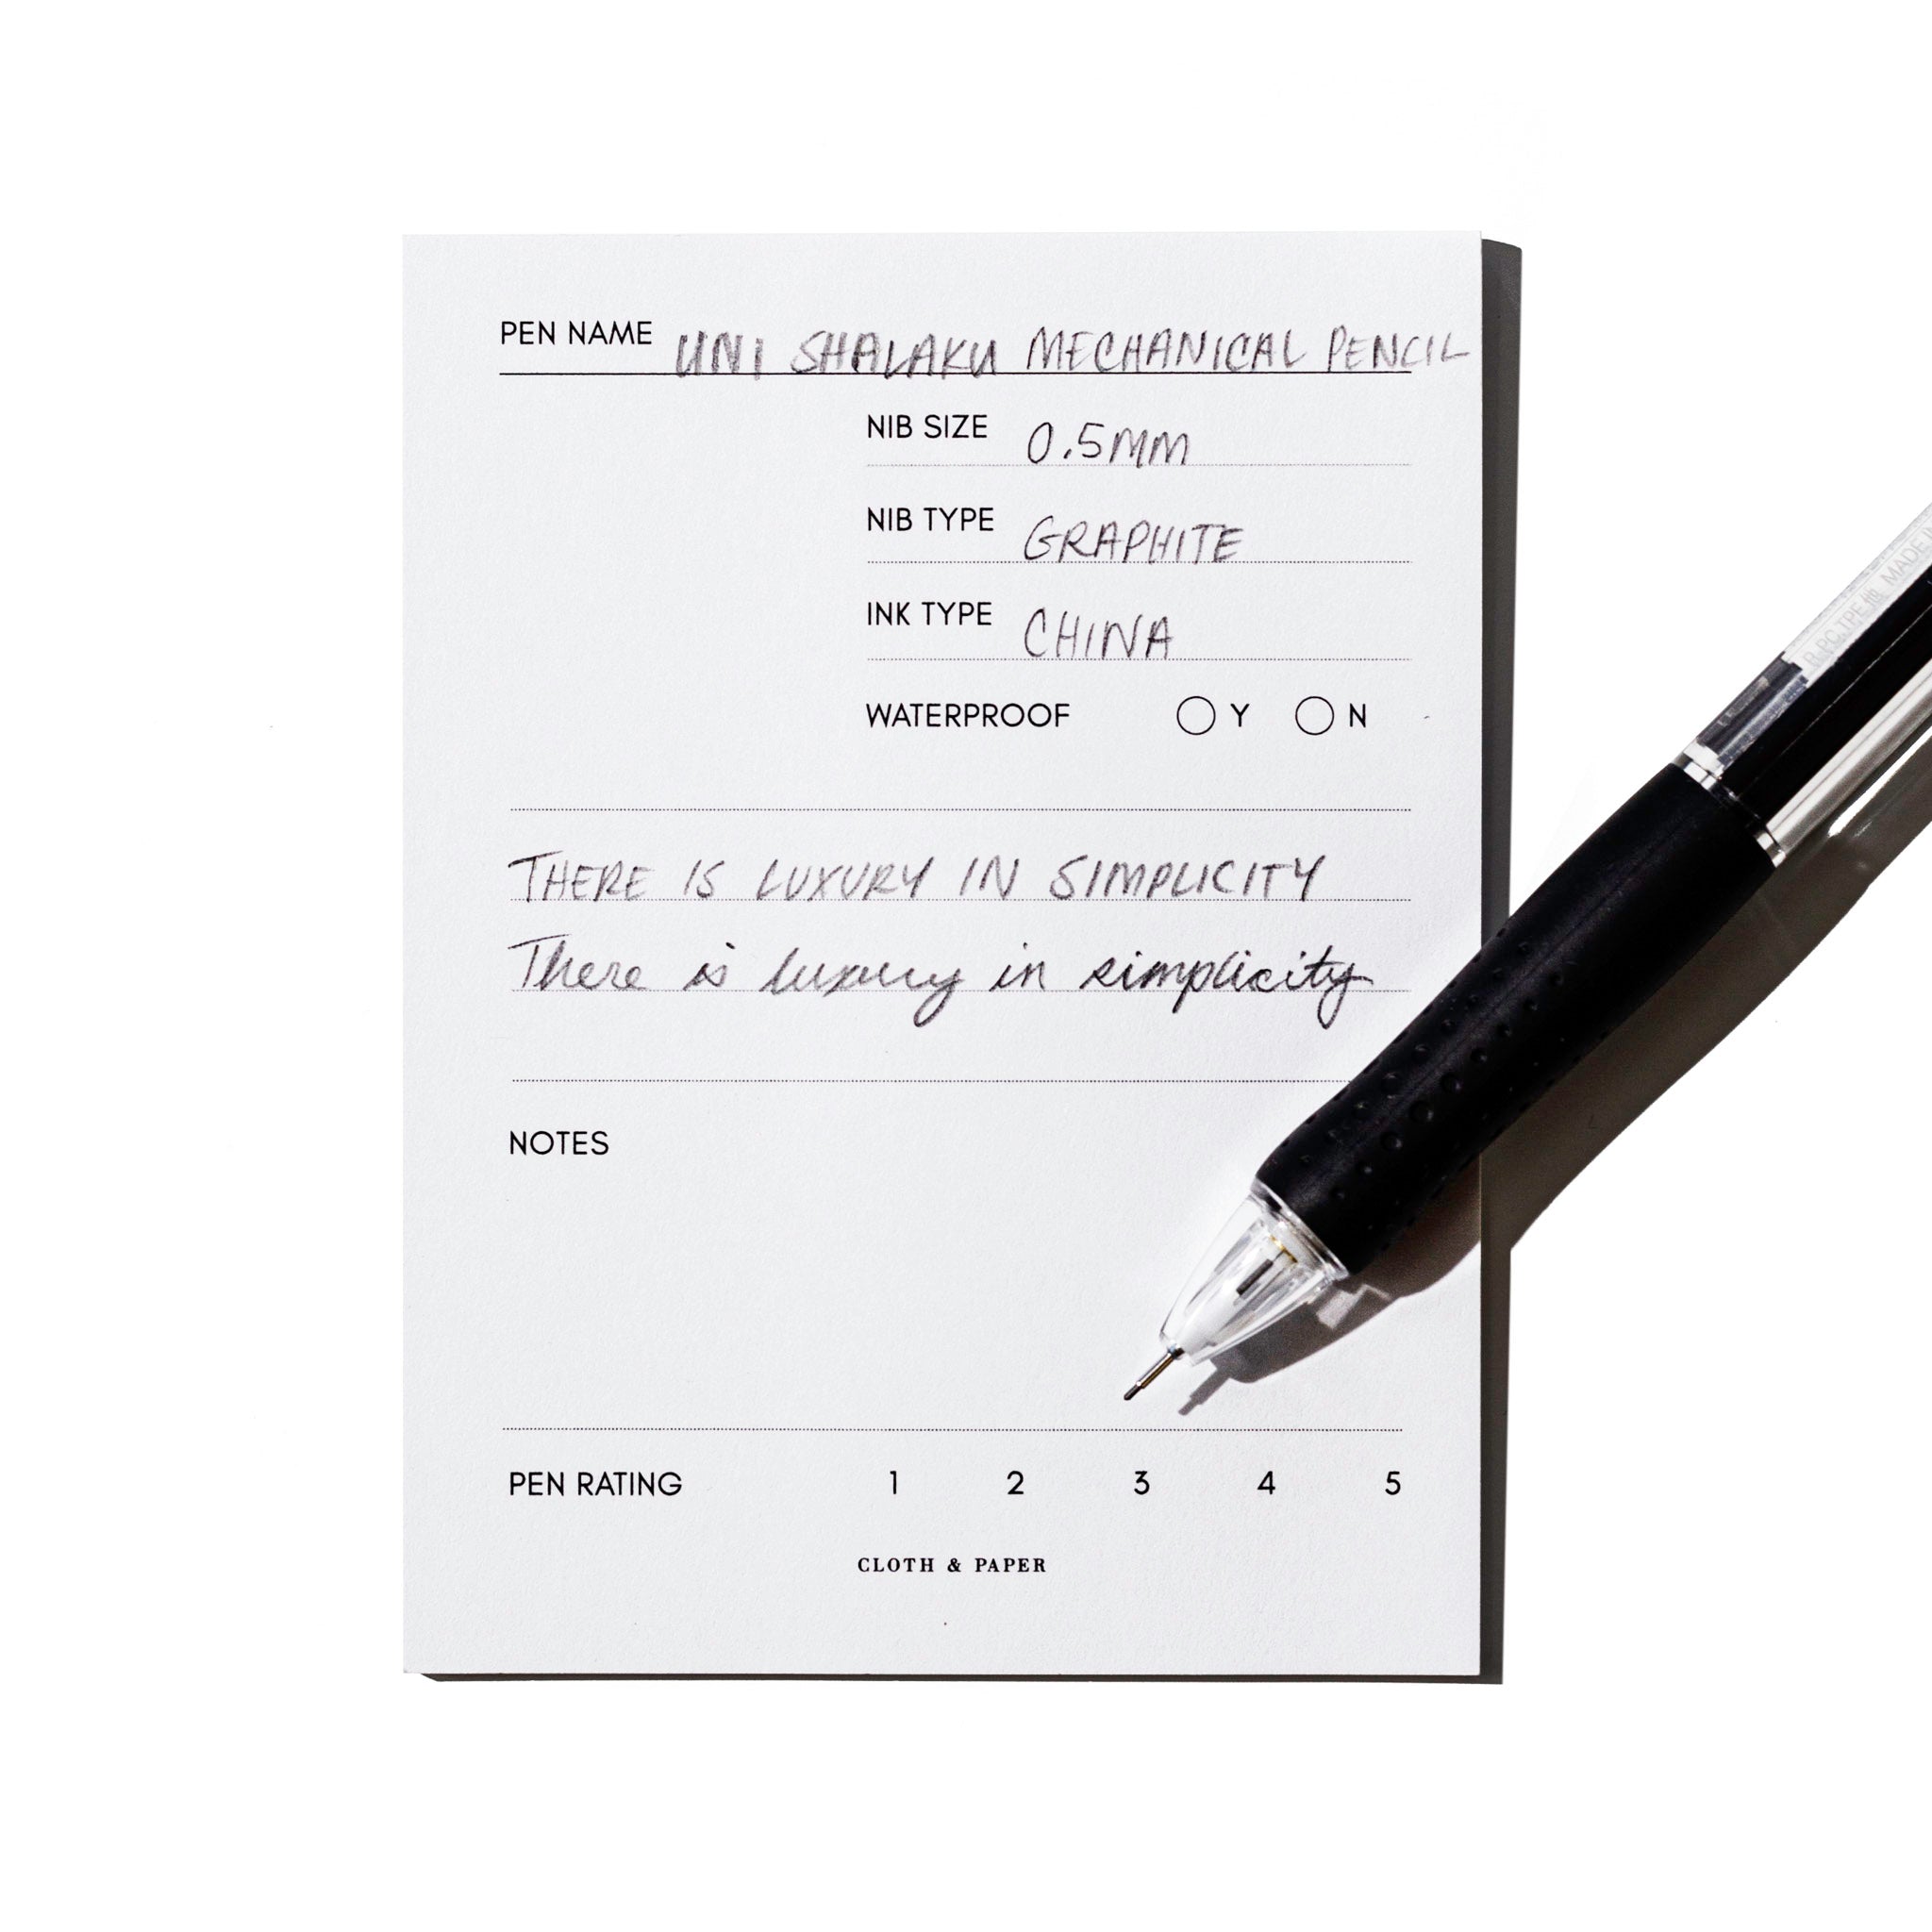 PEN NAME UNI SHALAKU MECHANICAL PENCIL
NIB SIZE 0.5MM
NIB TYPE GRAPHITE
INK TYPE CHINA
WATERPROOF Y N
THERE IS LUXURY IN SIMPLICITY
There is luxury in simplicity
NOTES
PEN RATING 1 2 3 4 5
CLOTH & PAPER
MADE